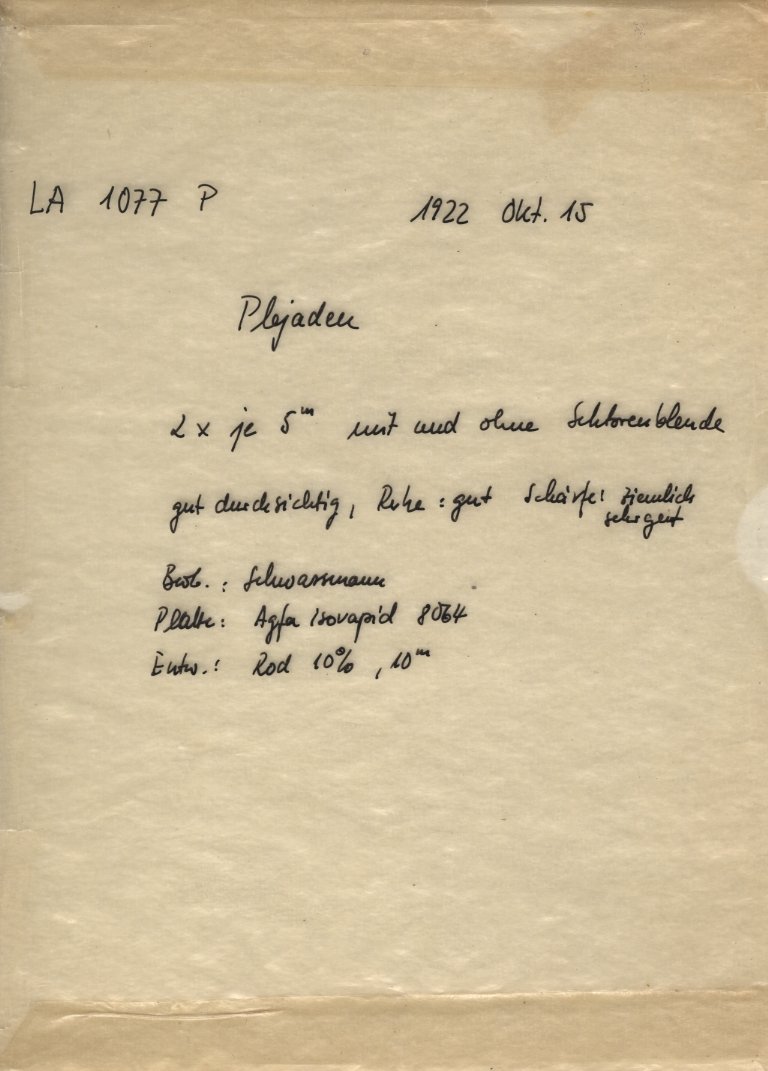 LA 1077 P
1922 Okt. 15
Plejaden
2 x je 5ᵐ mit und ohne Sektorenblende
gut durchsichtig, Ruhe : gut Schärfe: ziemlich
sehr gut
Beob. : Schwassmann
Platte: Agfa Isorapid 8064
Entw.: Rod 10%, 10ᵐ